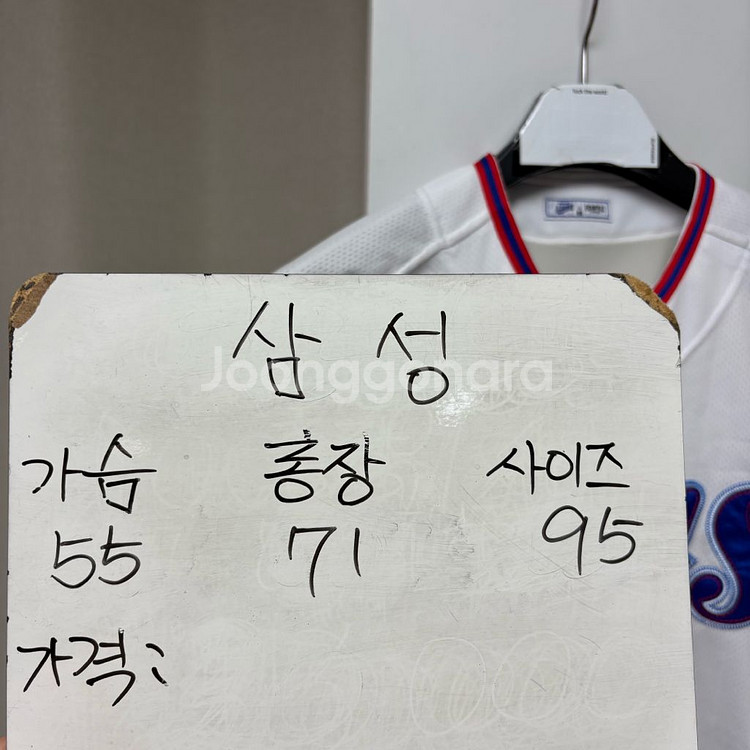 삼성
Joonggonara
가슴 총장 사이즈
55 71 95
가격: